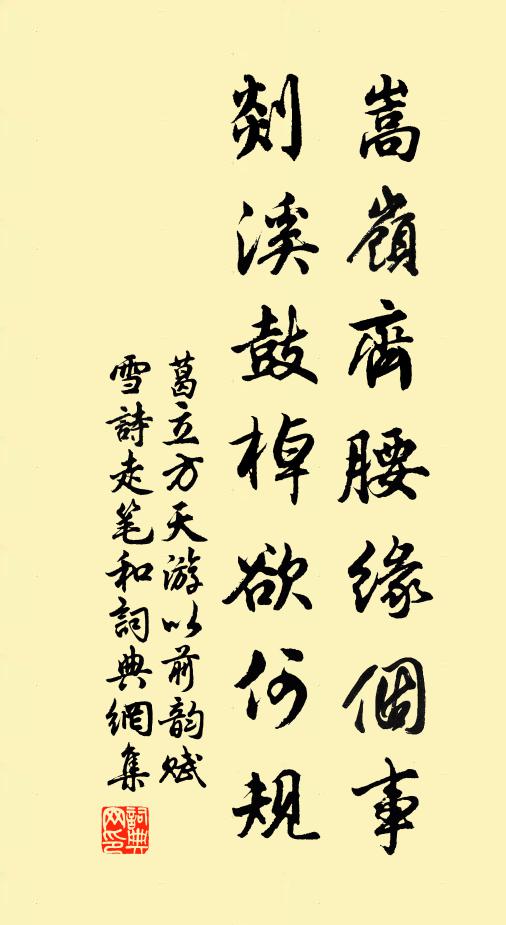 嵩嶺齊腰緣個事
剡溪鼓棹欲何規
葛立方天游以前韵賦
雪詩走笔和詞典網集
詞典网印